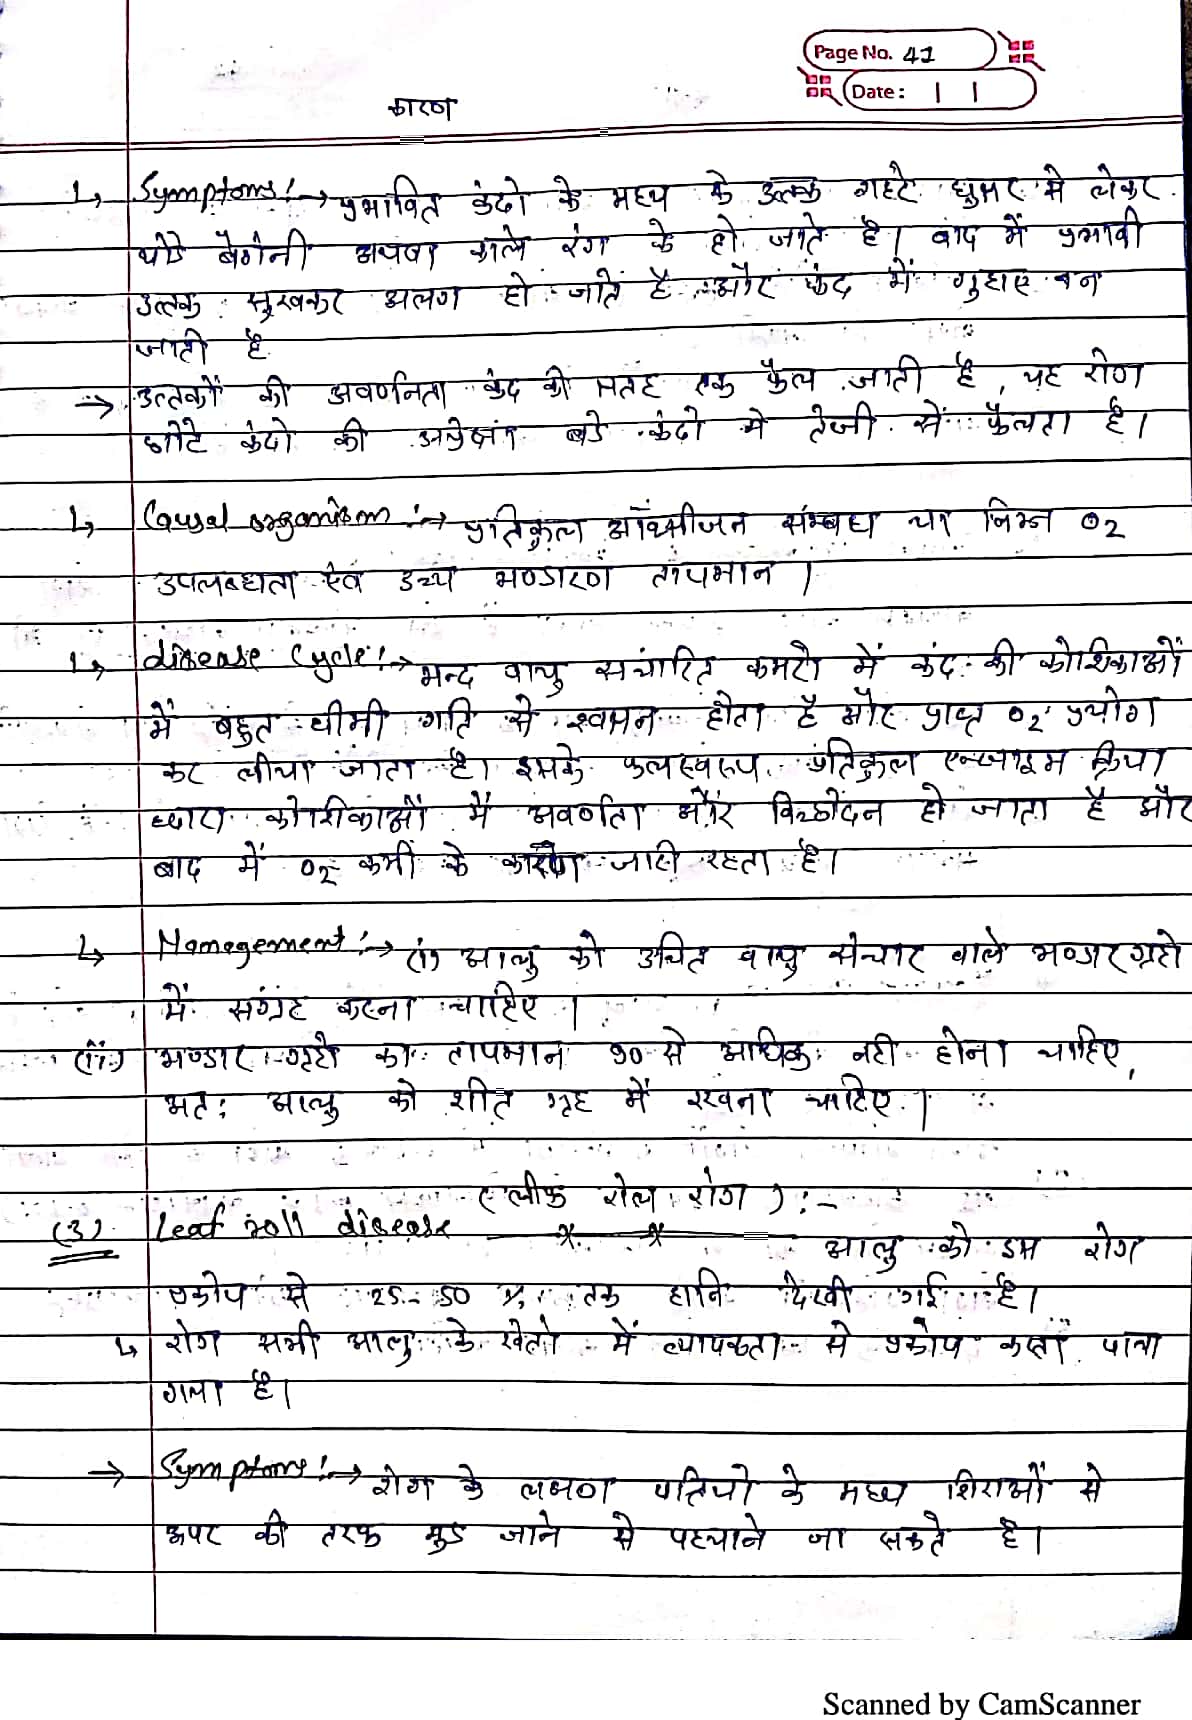 Page No. 41
Date: | |
कारण
↳ Symptoms:→ प्रभावित कंदो के मध्य के उत्तक गहरे घुसर से लेकर
थोडे बैगंनी अथवा काले रंग के हो जाते है। बाद में प्रभावी
उत्तक सुखकर अलग हो जाते है और कंद में गुहाए बन
जाती है
→ उत्तकों की अवर्णनिता कंद की सतह तक फैल जाती है, यह रोग
छोटे कंदो की अपेक्षा बडे कंदो मे तेजी से फैलता है।
↳ Causal organism:→ प्रतिकुल ऑक्सीजन संम्बध या निम्न O2
उपलब्धता एवं उच्च भण्डारण तापमान।
↳ disease Cycle:→ मन्द वायु संचारित कमरो में कंद की कोशिकाओं
में बहुत धीमी गति से श्वसन होता है और प्राप्त O2 प्रयोग
कर लीया जाता है। इसके फलस्वरुप प्रतिकुल एन्जाइम क्रिया
ध्दारा कोशिकाओं में अवर्णता और विच्छेदन हो जाता है और
बाद में O2 कमी के कारण जारी रहता है।
↳ Manegement:→ (i) आलु को उचित वायु संचार वाले भण्डारग्रहो
में संग्रह करना चाहिए।
(ii) भण्डार ग्रहो का तापमान 90 से अधिक नही होना चाहिए,
अत: आलु को शीत गृह में रखना चाहिए।
(लीफ रोल रोग):-
(3) Leaf roll disease आलु को इस रोग
प्रकोप से 25-50 % तक हानि देखी गई है।
↳ रोग सभी आलु के खेतो में व्यापकता से प्रकोप कर्ता पाया
गया है।
→ Symptoms:→ रोग के लक्षण पतियो के मध्य शिराओं से
ऊपर की तरफ मुड जाने से पहचाने जा सकते है।
Scanned by CamScanner